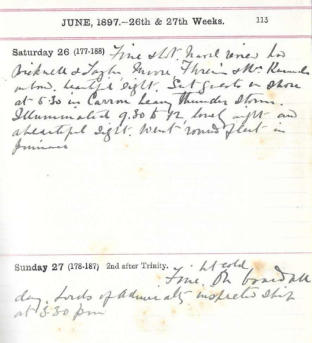 JUNE, 1897.—26th & 27th Weeks. 113
Saturday 26 (177-188) Fine & hot. Naval review
Bicknell & Taylor
on board, beautiful sight. Set guests on shore
at 5.30 in Carron heavy thunder storm.
Illuminated 9.30 to 12, lovely night and
a beautiful sight. Went round fleet in
Sunday 27 (178-187) 2nd after Trinity.
Fine. On board all
day. Lords of Admiralty inspected ship
at 3.30 pm